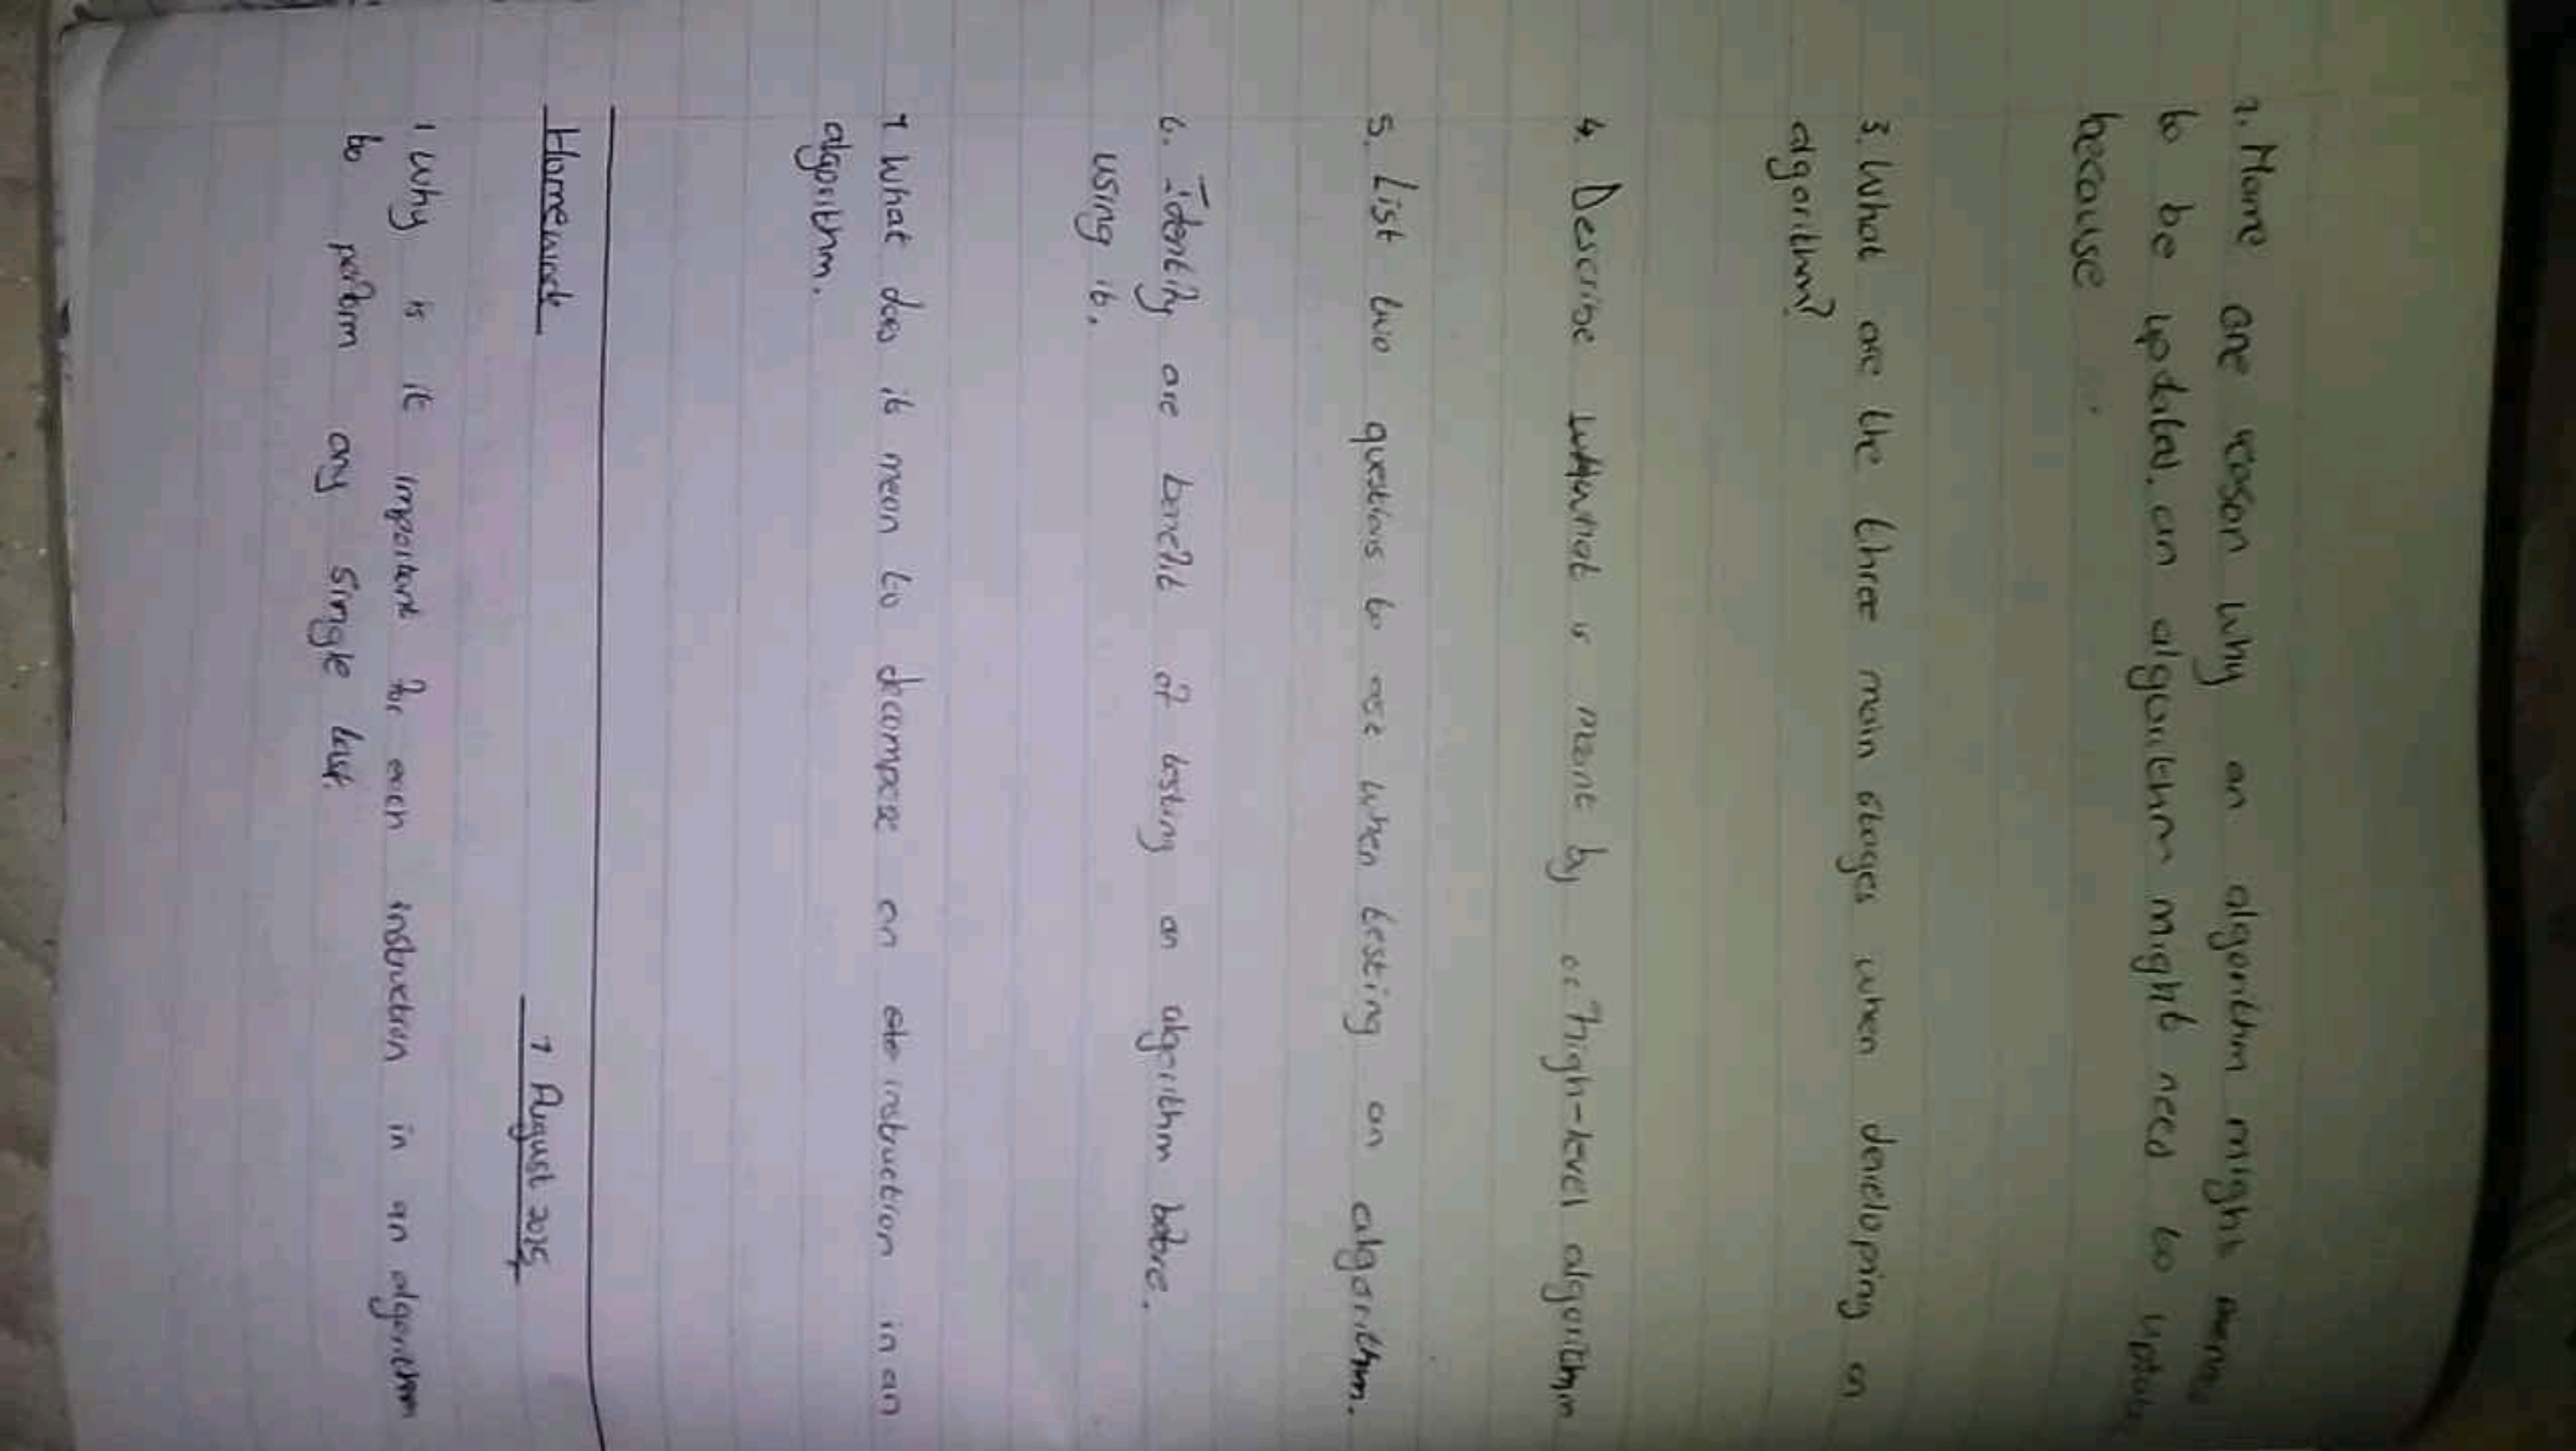 2. Name one reason why an algorithm might
to be updated. an algorithm might need to
because
3. What are the three main stages when developing an
algorithm?
4. Describe what is meant by a high-level algorithm
5. List two questions to ask when testing an algorithm.
6. Identify one benefit of testing an algorithm before.
using it.
7 What does it mean to decompose an instruction in an
algorithm.
Homework
7 August 2025
1 Why is it important for each instruction in an algorithm
to perform any single task.